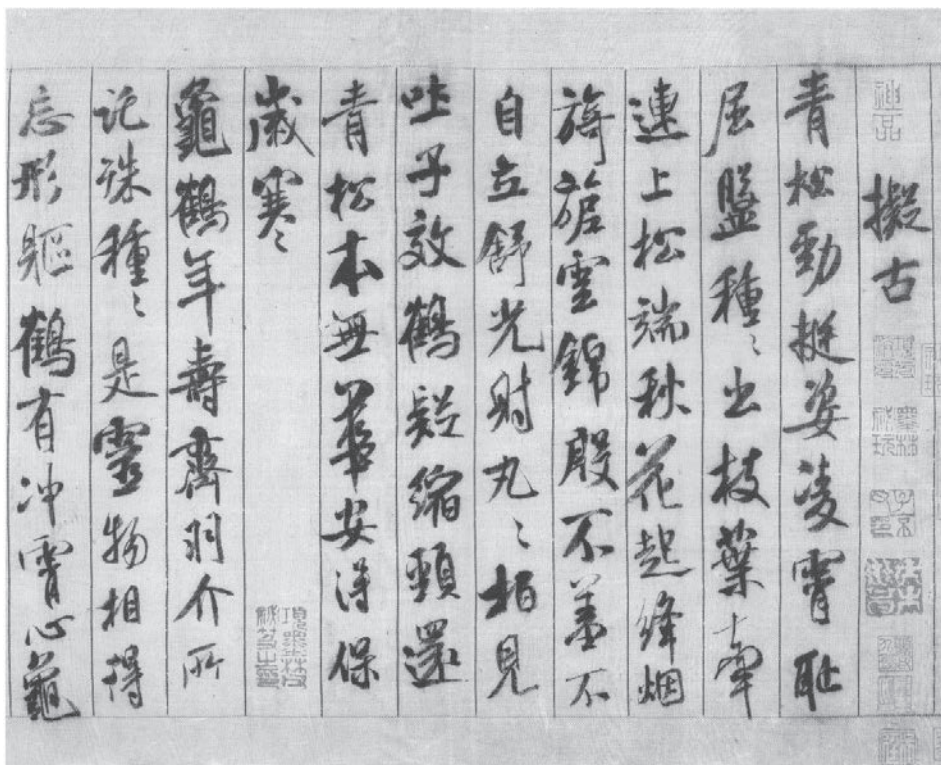 神品
擬古
青松勁挺姿凌霄恥
屈盤種〻出枝葉牽
連上松端秋花起絳烟
旖旎雲錦殷不羞不
自立舒光射丸〻柏見
吐子效鶴疑縮頸還
青松本無華安得保
歲寒〻
項墨林父祕笈之印
龜鶴年壽齊羽介所
託殊種〻是靈物相得
忘形軀鶴有冲霄心龜